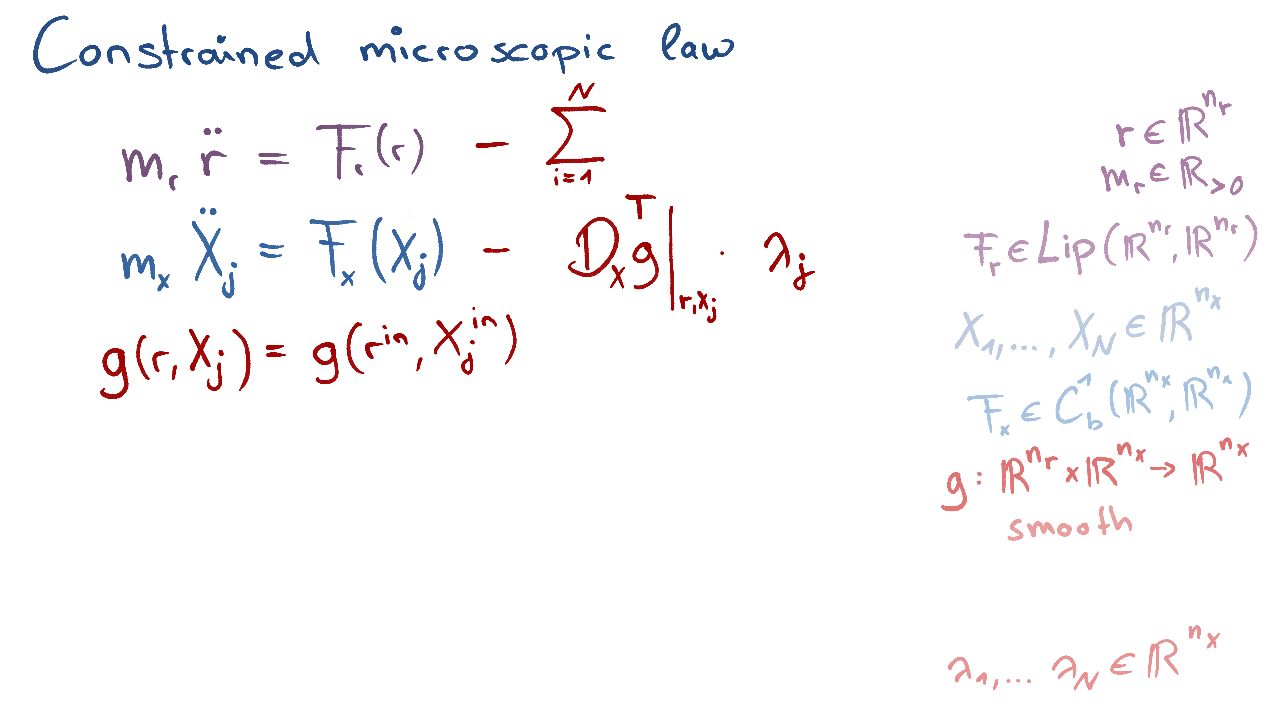 Constrained microscopic law
mᵣ r̈ = Fᵣ(r) − ∑ᵢ₌₁ᴺ
mₓ Ẍⱼ = Fₓ(Xⱼ) − Dₓgᵀ|_{r,Xⱼ} · λⱼ
g(r, Xⱼ) = g(rⁱⁿ, Xⱼⁱⁿ)
r ∈ ℝ^{nᵣ}
mᵣ ∈ ℝ_{>0}
Fᵣ ∈ Lip(ℝ^{nᵣ}, ℝ^{nᵣ})
X₁, ..., X_N ∈ ℝ^{nₓ}
Fₓ ∈ C_b¹(ℝ^{nₓ}, ℝ^{nₓ})
g : ℝ^{nᵣ} × ℝ^{nₓ} → ℝ^{nₓ}
smooth
λ₁, ... λ_N ∈ ℝ^{nₓ}